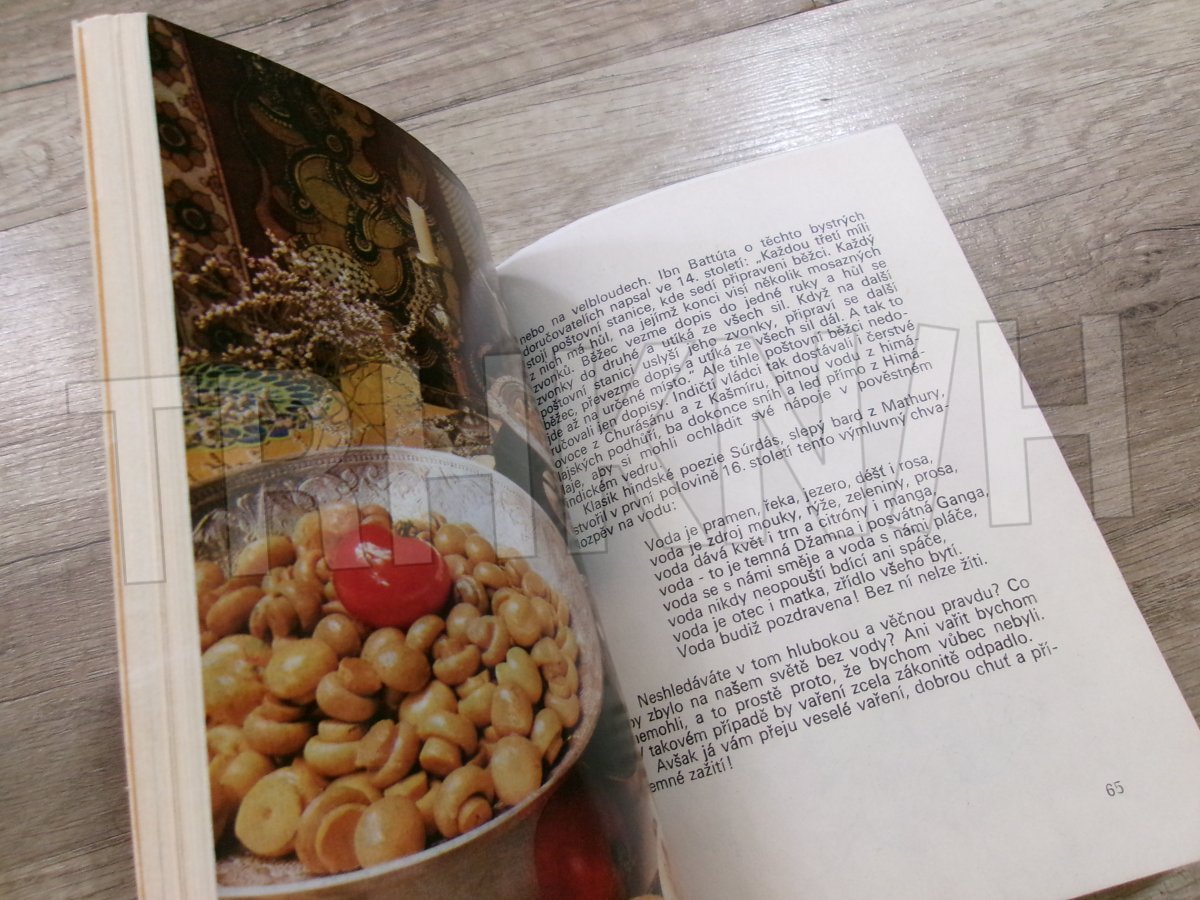 nebo na velbloudech. Ibn Battúta o těchto bystrých
doručovatelích napsal ve 14. století: „Každou třetí míli
stojí poštovní stanice, kde sedí připraveni běžci. Každý
z nich má hůl, na jejímž konci visí několik mosazných
zvonků. Běžec vezme dopis do jedné ruky a hůl se
zvonky do druhé a utíká ze všech sil. Když na další
poštovní stanici uslyší jeho zvonky, připraví se další
běžec, převezme dopis a utíká ze všech sil dál. A tak to
jde až na určené místo." Ale tihle poštovní běžci nedo-
ručovali jen dopisy. Indičtí vládci tak dostávali čerstvé
ovoce z Churásánu a z Kašmíru, pitnou vodu z himá-
lajských podhůří, ba dokonce sníh a led přímo z Himá-
laje, aby si mohli ochladit své nápoje v pověstném
indickém vedru.
Klasik hindské poezie Súrdás, slepý bard z Mathury,
stvořil v první polovině 16. století tento výmluvný chva-
lozpěv na vodu:
Voda je pramen, řeka, jezero, déšť i rosa,
voda je zdroj mouky, rýže, zeleniny, prosa,
voda dává květ i trn a citróny i manga,
voda - to je temná Džamna i posvátná Ganga,
voda se s námi směje a voda s námi pláče,
voda nikdy neopouští bdící ani spáče,
voda je otec i matka, zřídlo všeho bytí.
Voda budiž pozdravena! Bez ní nelze žíti.
Neshledáváte v tom hlubokou a věčnou pravdu? Co
by zbylo na našem světě bez vody? Ani vařit bychom
nemohli, a to prostě proto, že bychom vůbec nebyli.
V takovém případě by vaření zcela zákonitě odpadlo.
Avšak já vám přeju veselé vaření, dobrou chuť a pří-
jemné zažití!
65